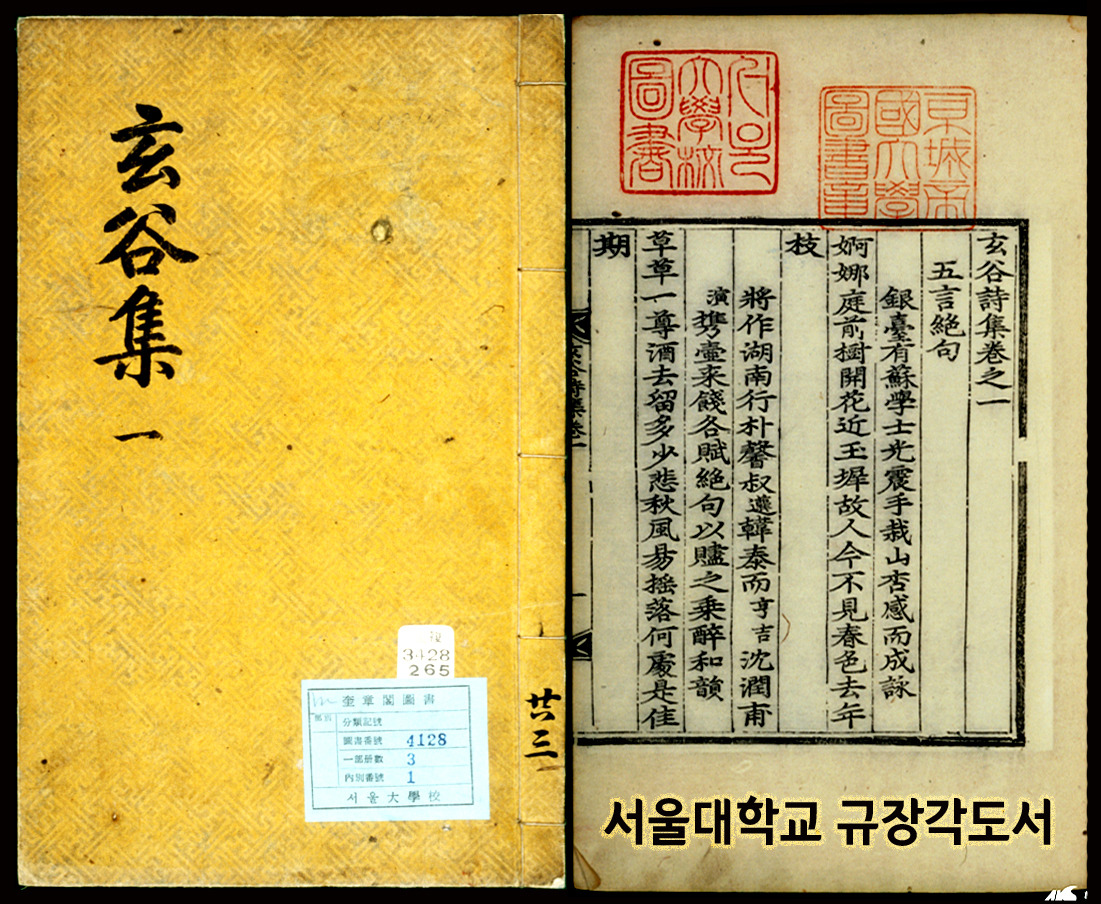 玄谷集 一
複
3428
265
奎章閣圖書
部別
分類記號
圖書番號 4128
一部册數 3
內別番號 1
서울大學校
共三
서울
大學校
圖書
京城帝
國大學
圖書章
玄谷詩集卷之一
五言絕句
銀臺有蘇學士光震手栽山杏感而成詠
婀娜庭前樹開花近玉墀故人今不見春色去年
枝
將作湖南行朴馨叔𨗉韓泰而亨吉沈潤甫
演携壺來餞各賦絕句以贐之乘醉和韻
草草一尊酒去留多少悲秋風易搖落何處是佳
期
玄谷詩集卷一
一
서울대학교 규장각도서